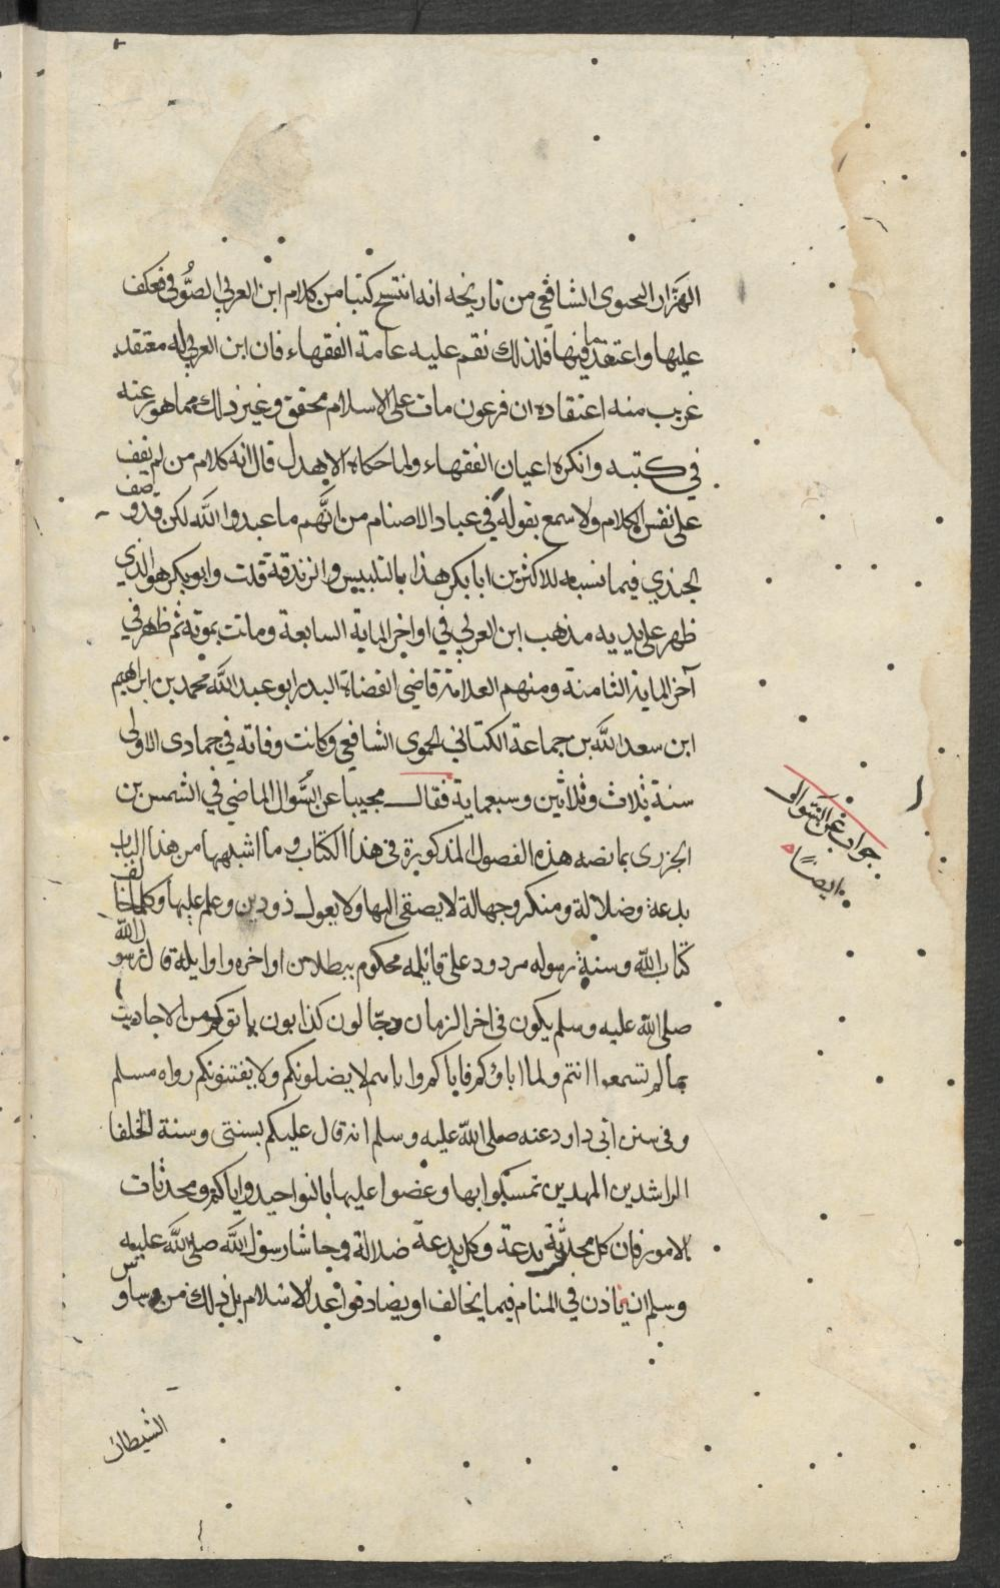 الهزاز اليحيوى الشافعي من تاريخه انه انتسخ كتبا من كلام ابن العربي الصُّوفي فعكف
عليها واعتقد ما فيها فلذلك نقم عليه عامة الفقهاء فان ابن العربي له معتقد
غريب منه اعتقاده ان فرعون مات على الاسلام محقق وغير ذلك مما هو عنه
في كتبه وانكره اعيان الفقهاء ولما حكاه الاهدل قال انه كلام من لم يقف
على نفس الكلام ولا سمع بقوله في عباد الاصنام من انَّهم ما عبدوا الا اللَّه لكن قد وصف
الجندي فيما نسبه للاكثرين ابا بكر هذا بالتلبيس والزندقة قلت وابو بكر هو الذي
ظهر على يديه مذهب ابن العربي في اواخر الماية السابعة ومات بموته ثم ظهر في
آخر الماية الثامنة ومنهم العلامة قاضي القضاة البدر ابو عبد اللَّه محمد بن ابراهيم
ابن سعد اللَّه بن جماعة الكتاني الحموي الشافعي وكانت وفاته في جمادى الاولى
سنة ثلاث وثلاثين وسبعماية فقال مجيبا عن السُّوال الماضي في الشمس بن
الجزرى بما نصه هذه الفصول المذكورة في هذا الكتاب وما اشبهها من هذا الباب
بدعة وضلالة ومنكر وجهالة لا يصغى اليها ولا يعول ذو دين وعلم عليها وكلما خالف
كتاب الله وسنة رسوله مردود على قائله محكوم ببطلان اواخره واوايله قال رسول اللّه
صلى الله عليه وسلم يكون في اخر الزمان دجّالون كذابون ياتوكم من الاحاديث
بما لم تسمعوا انتم ولا اباؤكم فاياكم واياهم لا يضلونكم ولا يفتنونكم رواه مسلم
وفي سنن ابي داود عنه صلى الله عليه وسلم انه قال عليكم بسنتى وسنة الخلفا
الراشدين المهديين تمسكوا بها وعضوا عليها بالنواجيد واياكم ومحدثات
الامور فان كل محدثة بدعة وكل بدعة ضلالة وحاشا رسول اللَّه صلى اللَّه عليه
وسلم ان ياذن في المنام فيما يخالف او يضاد قواعد الاسلام بل ذلك من وساوس
الشيطان
جواب عن السُّوال
ايضًا